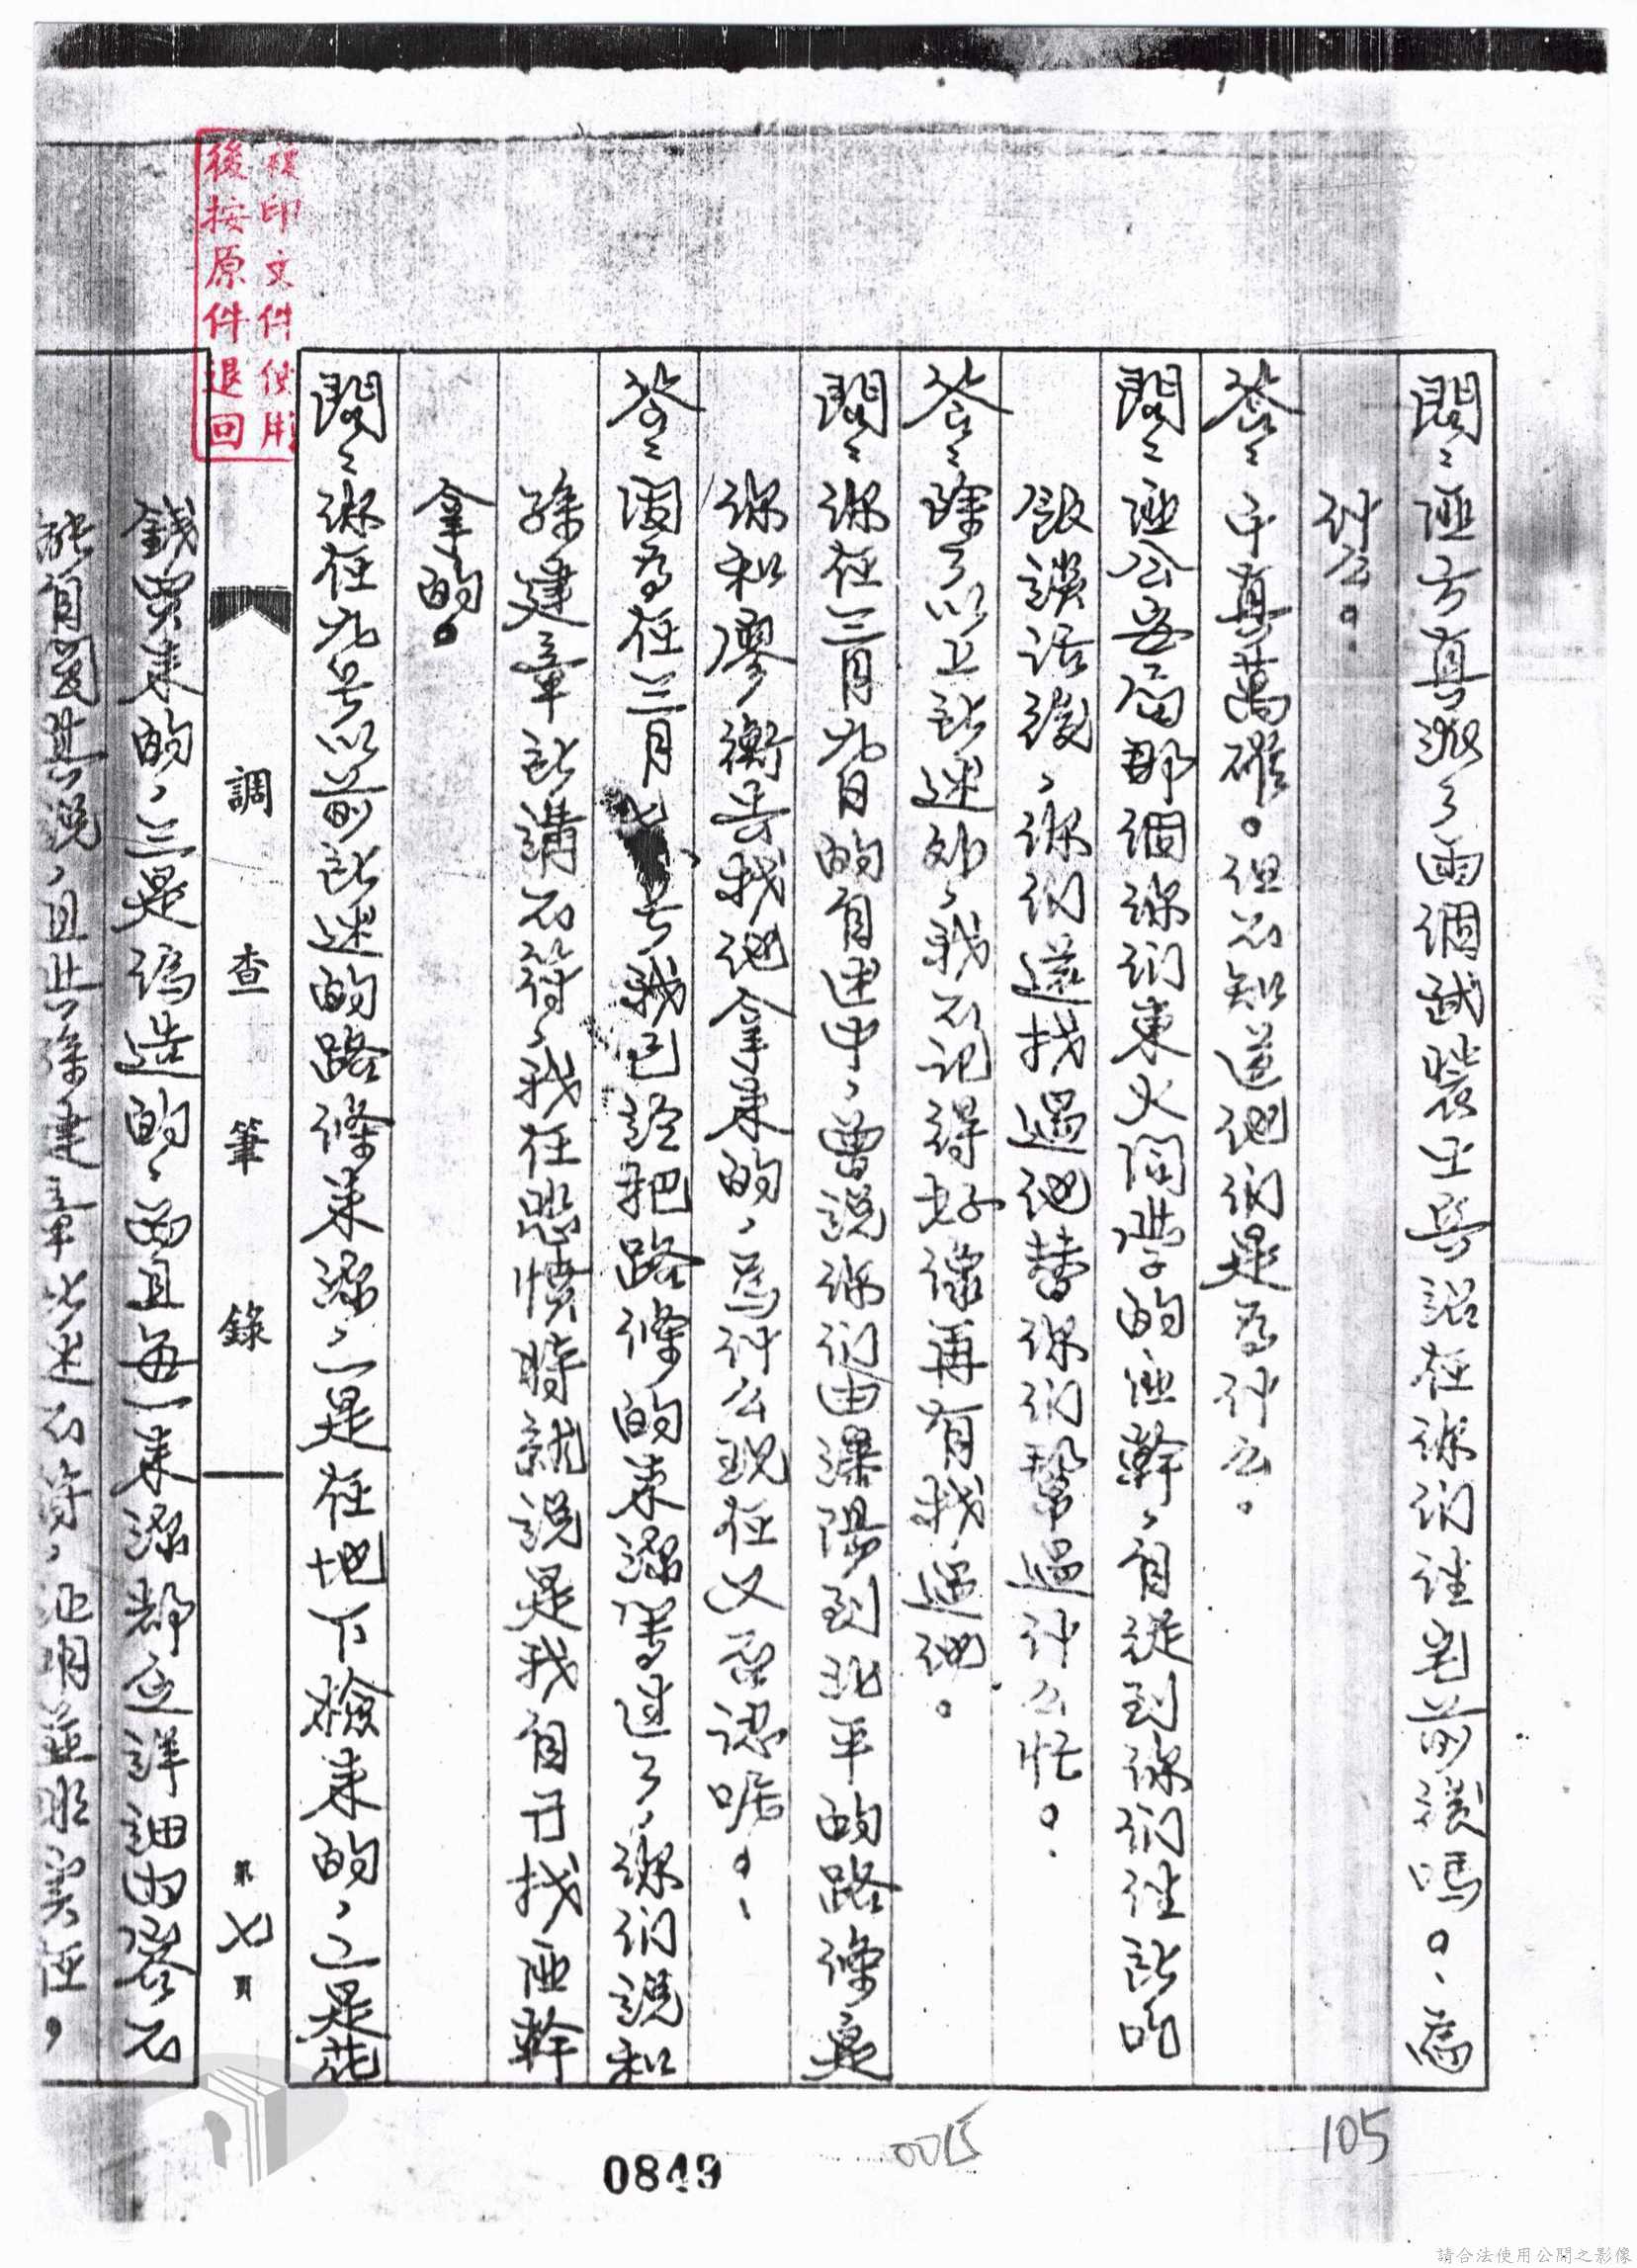 問：匪方真派了兩個武裝士兵站在你們住宅前後嗎。為
什么。
答：千真萬確。但不知道他們是為什么。
問：匪公安局那個你們東大同學的匪幹，自從到你們住所吃
飯談話後，你們還找過他替你們幫過什么忙。
答：除了以上所述外，我不記得好像再有找過他。
問：你在三月九日的自述中，曾說你們由瀋陽到北平的路條是
你和廖衡去找他拿來的，為什么現在又否認呢。
答：因為在三月七號我已經把路條的來源寫過了，你們說和
孫建章所講不符，我在恐慎時就說是我自己找匪幹
拿的。
問：你在九號以前所述的路條來源，一是在地下撿來的，二是花
調查筆錄
第七頁
錢買來的，三是偽造的，而且每一來源都是詳細內容不
孫建章所述不符，
複印文件使用
後按原件退回
0849
105
請合法使用公開之影像